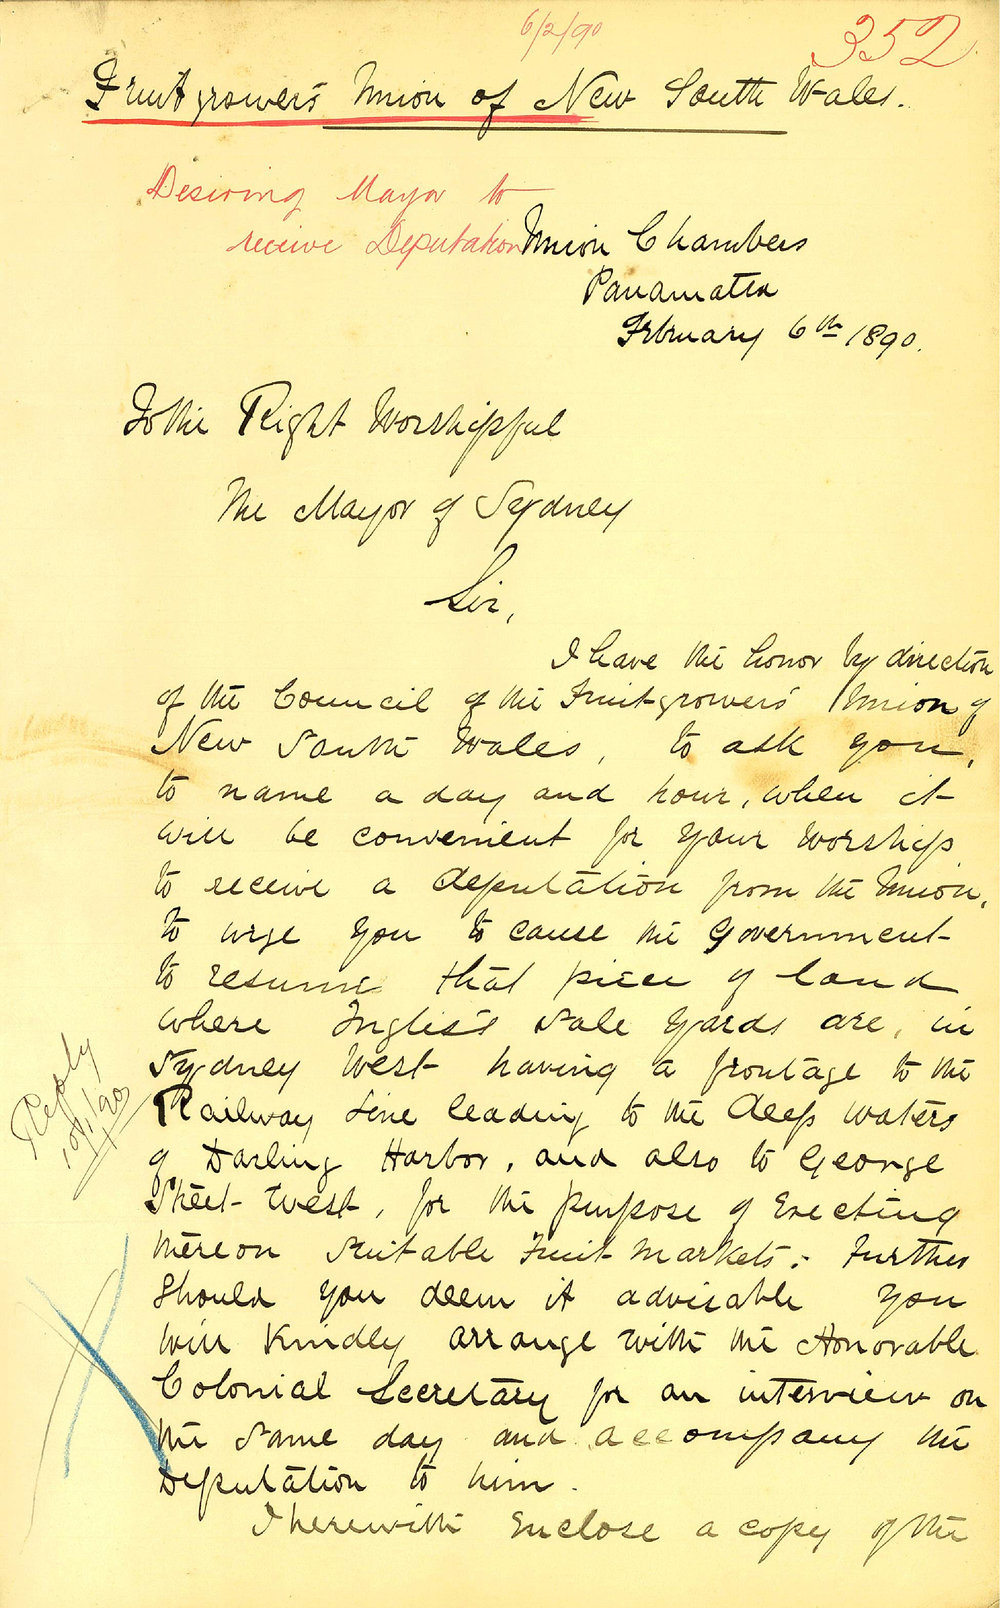 6/2/90
352
Fruitgrowers Union of New South Wales.
Desiring Mayor to
receive Deputation
Union Chambers
Parramatta
February 6th 1890.
To the Right Worshipful
The Mayor of Sydney
Sir,
I have the honor by direction
of the Council of the Fruitgrowers' Union of
New South Wales, to ask you,
to name a day and hour, when it
will be convenient for your worship
to receive a deputation from the Union,
to urge you to cause the Government
to resume that piece of land
where Inglis's Sale Yards are, in
Sydney West having a frontage to the
Railway Line leading to the deep waters
of Darling Harbor, and also to George
Street West, for the purpose of Erecting
thereon suitable Fruit Markets:- Further
Should you deem it advisable you
will Kindly arrange with the Honorable
Colonial Secretary for an interview on
the same day and accompany the
Deputation to him.
I herewith Enclose a copy of the
Reply